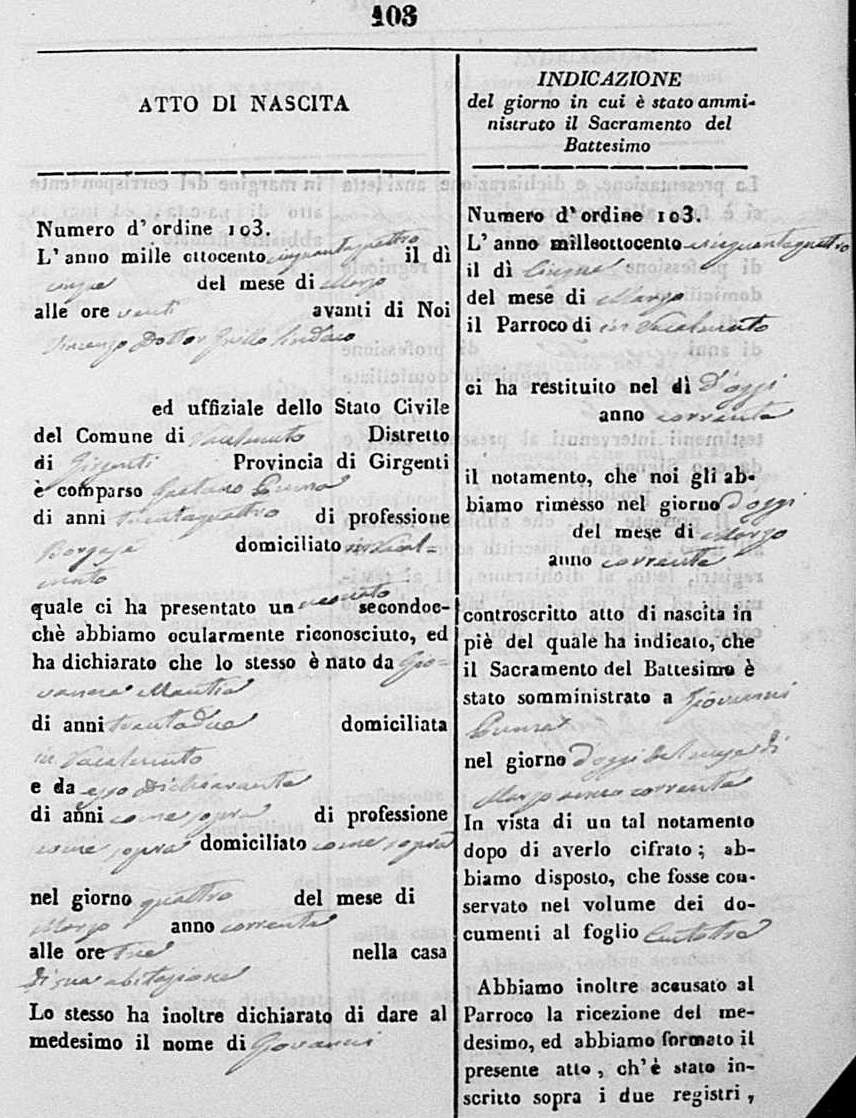 103
ATTO DI NASCITA
Numero d'ordine 103.
L'anno mille ottocento cinquantaquattro il dì
cinque del mese di Marzo
alle ore venti avanti di Noi
Vincenzo Dottor Grillo Sindaco
ed uffiziale dello Stato Civile
del Comune di Racalmuto Distretto
di Girgenti Provincia di Girgenti
è comparso Gaetano
di anni trentaquattro di professione
Borgese domiciliato in Racal=
muto
quale ci ha presentato un neonato secondoc-
chè abbiamo ocularmente riconosciuto, ed
ha dichiarato che lo stesso è nato da Gio=
vanna Mantia
di anni trentadue domiciliata
in Racalmuto
e da esso Dichiarante
di anni come sopra di professione
come sopra domiciliato come sopra
nel giorno quattro del mese di
Marzo anno corrente
alle ore tre nella casa
di sua abitazione
Lo stesso ha inoltre dichiarato di dare al
medesimo il nome di Giovanni
INDICAZIONE
del giorno in cui è stato ammi-
nistrato il Sacramento del
Battesimo
Numero d'ordine 103.
L'anno milleottocento cinquantaquattro
il dì cinque
del mese di Marzo
il Parroco di in Racalmuto
ci ha restituito nel dì d'oggi
anno corrente
il notamento, che noi gli ab-
biamo rimesso nel giorno d'oggi
del mese di Marzo
anno corrente
controscritto atto di nascita in
piè del quale ha indicato, che
il Sacramento del Battesimo è
stato somministrato a Giovanni
nel giorno d'oggi del mese di
Marzo anno corrente
In vista di un tal notamento
dopo di averlo cifrato; ab-
biamo disposto, che fosse con-
servato nel volume dei do-
cumenti al foglio Centotre
Abbiamo inoltre accusato al
Parroco la ricezione del me-
desimo, ed abbiamo formato il
presente atto, ch'è stato in-
scritto sopra i due registri,